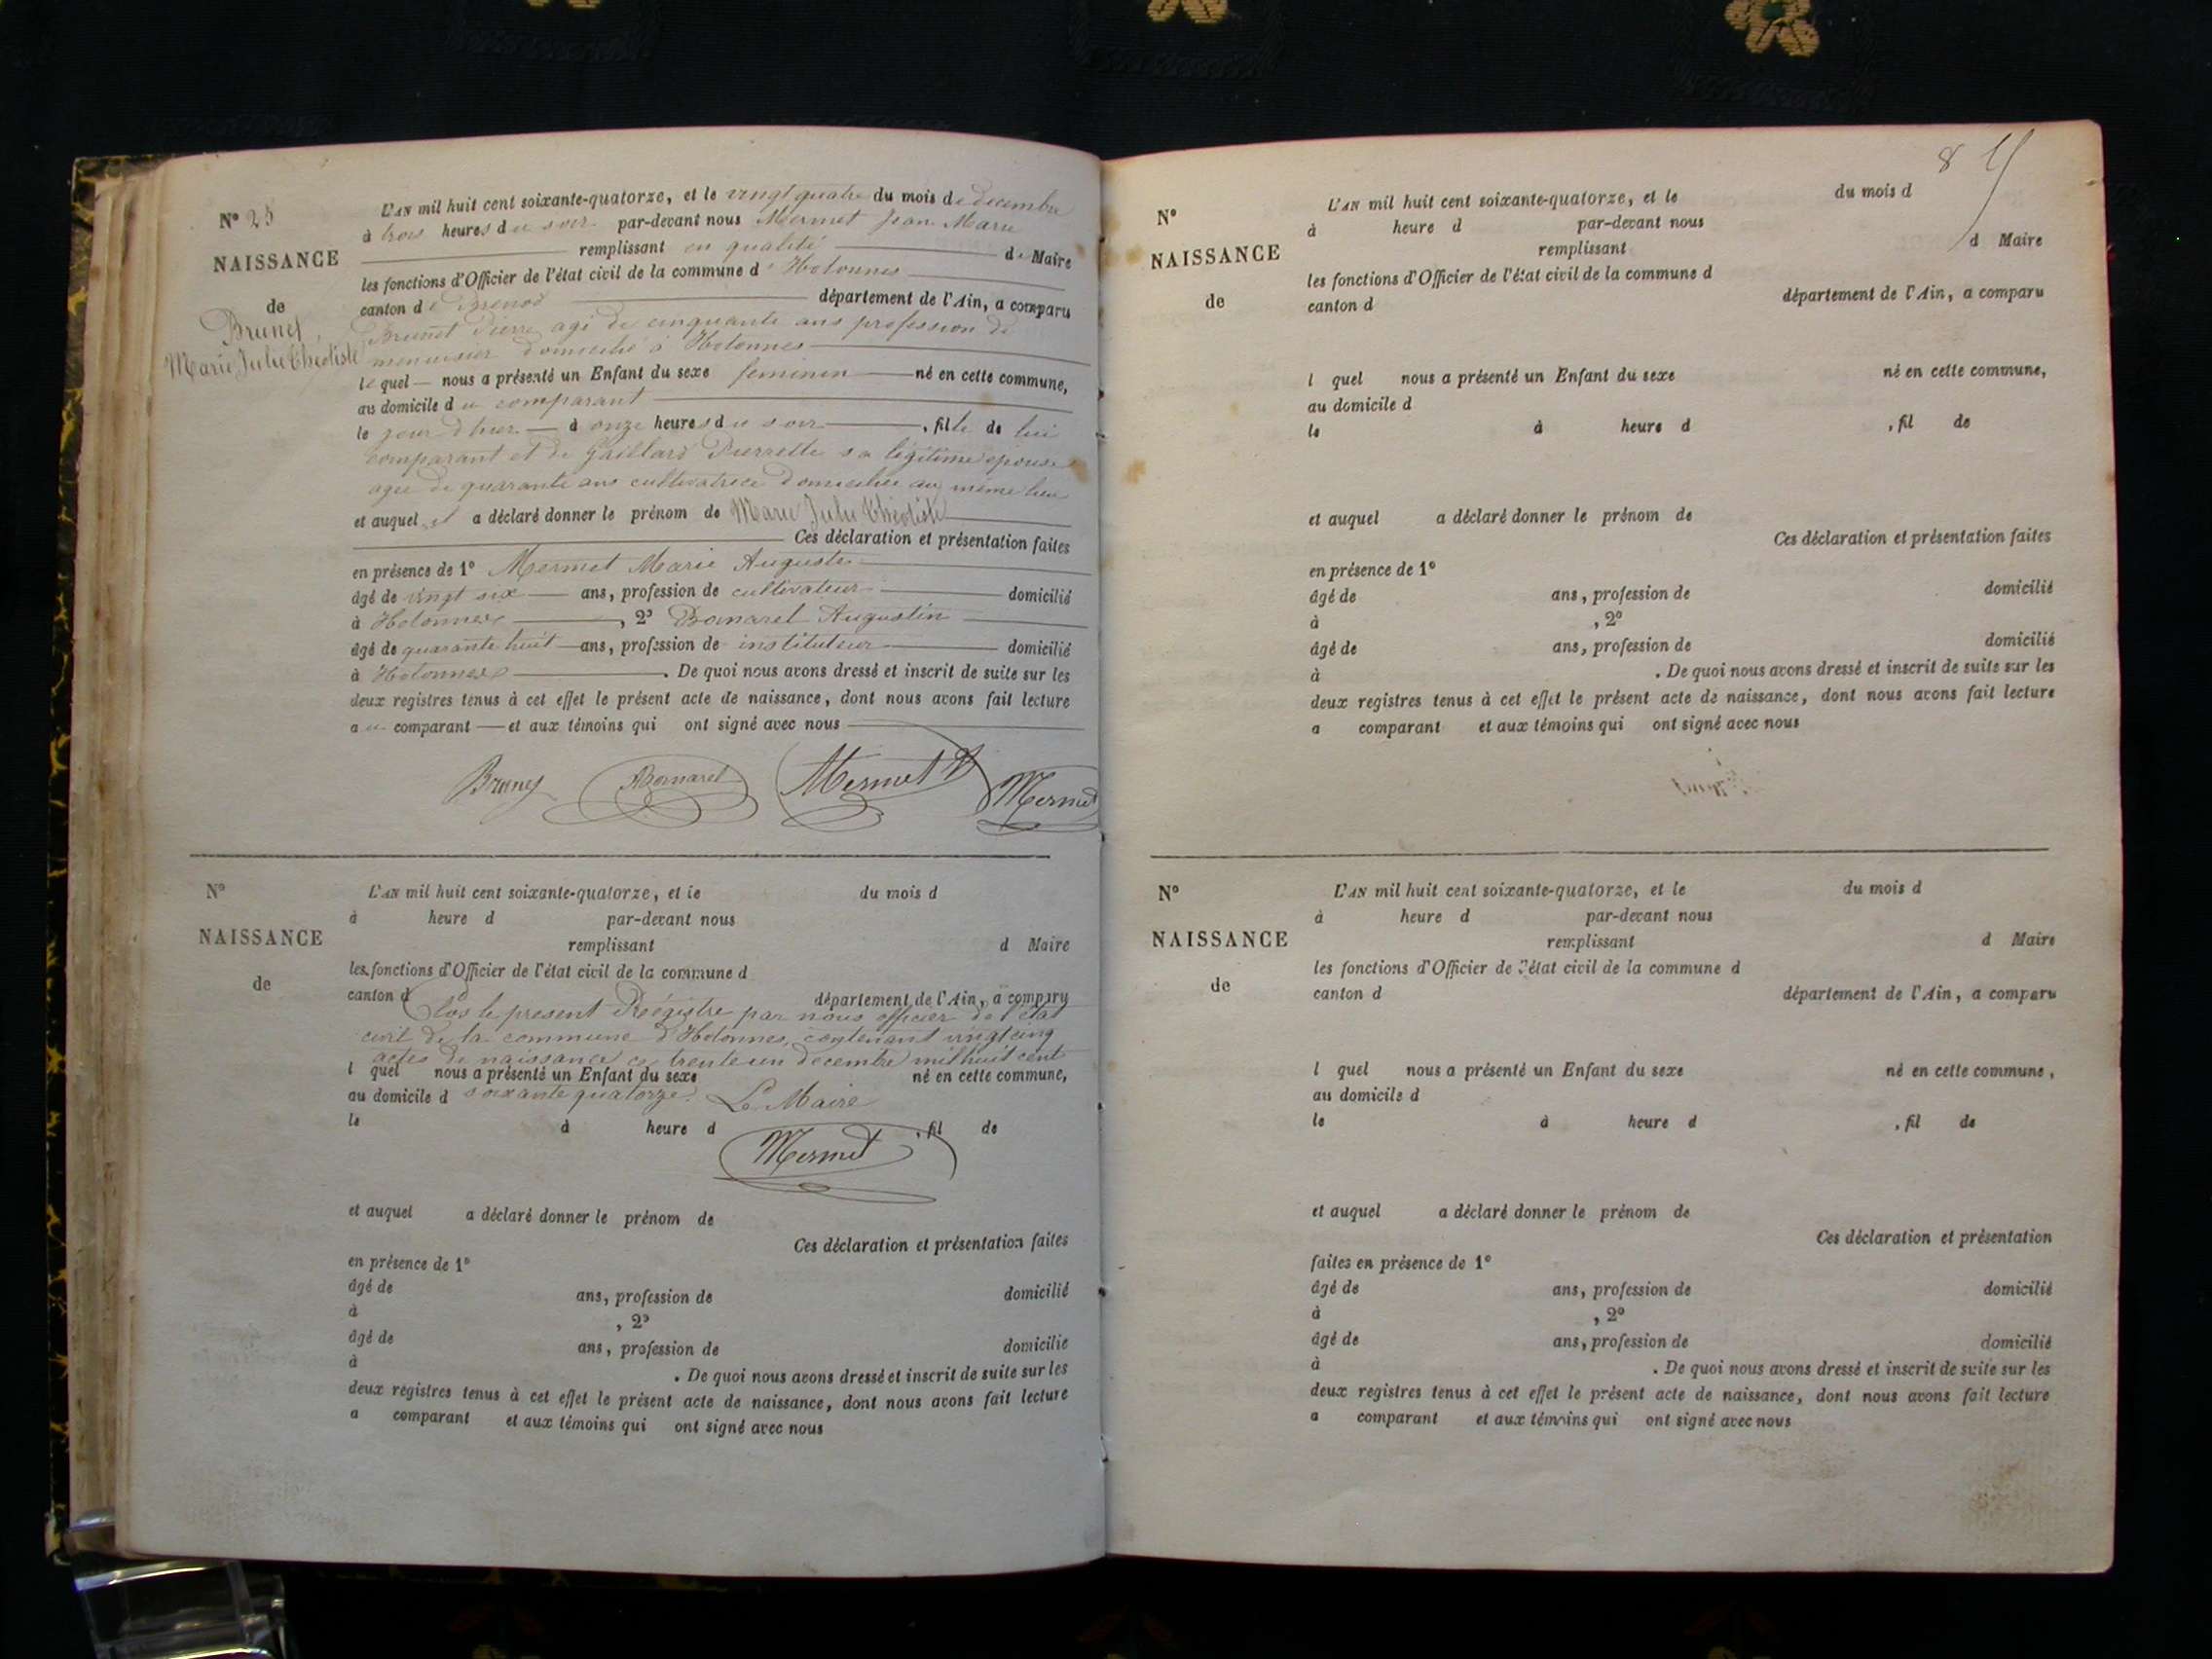 N° 25
NAISSANCE
de
Brunet
Marie Julie Théotiste
L'AN mil huit cent soixante-quatorze, et le vingt quatre du mois de decembre
à trois heures du soir par-devant nous Mermet Jean Marie
remplissant en qualité de Maire
les fonctions d'Officier de l'état civil de la commune d'Hotonnes
canton de Brenod département de l'Ain, a comparu
Brunet Pierre agé de cinquante ans profession de
menuisier domicilié à Hotonnes
lequel nous a présenté un Enfant du sexe feminin né en cette commune,
au domicile du comparant
le jour d'hier à onze heures du soir, fille de lui
comparant et de Gaillard Pierrette sa légitime épouse
agée de quarante ans cultivatrice domiciliée au même lieu
et auquel il a déclaré donner le prénom de Marie Julie Théotiste
Ces déclaration et présentation faites
en présence de 1° Mermet Marie Auguste
âgé de vingt six ans, profession de cultivateur domicilié
à Hotonnes, 2° Bornarel Augustin
âgé de quarante huit ans, profession de instituteur domicilié
à Hotonnes. De quoi nous avons dressé et inscrit de suite sur les
deux registres tenus à cet effet le présent acte de naissance, dont nous avons fait lecture
au comparant et aux témoins qui ont signé avec nous
Brunet Bornarel Mermet Mermet
N°
NAISSANCE
de
L'AN mil huit cent soixante-quatorze, et le du mois d
à heure d par-devant nous
remplissant d Maire
les fonctions d'Officier de l'état civil de la commune d
canton d département de l'Ain, a comparu
Clos le present Régistre par nous officier de l'état
civil de la commune d'Hotonnes, contenant vingt cinq
actes de naissance ce trente un decembre mil huit cent
l quel nous a présenté un Enfant du sexe né en cette commune,
au domicile d soixante quatorze. Le Maire
le à heure d , fil de
Mermet
et auquel a déclaré donner le prénom de
Ces déclaration et présentation faites
en présence de 1°
âgé de ans, profession de domicilié
à , 2°
âgé de ans, profession de domicilié
à . De quoi nous avons dressé et inscrit de suite sur les
deux registres tenus à cet effet le présent acte de naissance, dont nous avons fait lecture
a comparant et aux témoins qui ont signé avec nous
8
N°
NAISSANCE
de
L'AN mil huit cent soixante-quatorze, et le du mois d
à heure d par-devant nous
remplissant d Maire
les fonctions d'Officier de l'état civil de la commune d
canton d département de l'Ain, a comparu
l quel nous a présenté un Enfant du sexe né en cette commune,
au domicile d
le à heure d , fil de
et auquel a déclaré donner le prénom de
Ces déclaration et présentation faites
en présence de 1°
âgé de ans, profession de domicilié
à , 2°
âgé de ans, profession de domicilié
à . De quoi nous avons dressé et inscrit de suite sur les
deux registres tenus à cet effet le présent acte de naissance, dont nous avons fait lecture
a comparant et aux témoins qui ont signé avec nous
N°
NAISSANCE
de
L'AN mil huit cent soixante-quatorze, et le du mois d
à heure d par-devant nous
remplissant d Maire
les fonctions d'Officier de l'état civil de la commune d
canton d département de l'Ain, a comparu
l quel nous a présenté un Enfant du sexe né en cette commune,
au domicile d
le à heure d , fil de
et auquel a déclaré donner le prénom de
Ces déclaration et présentation
faites en présence de 1°
âgé de ans, profession de domicilié
à , 2°
âgé de ans, profession de domicilié
à . De quoi nous avons dressé et inscrit de suite sur les
deux registres tenus à cet effet le présent acte de naissance, dont nous avons fait lecture
a comparant et aux témoins qui ont signé avec nous